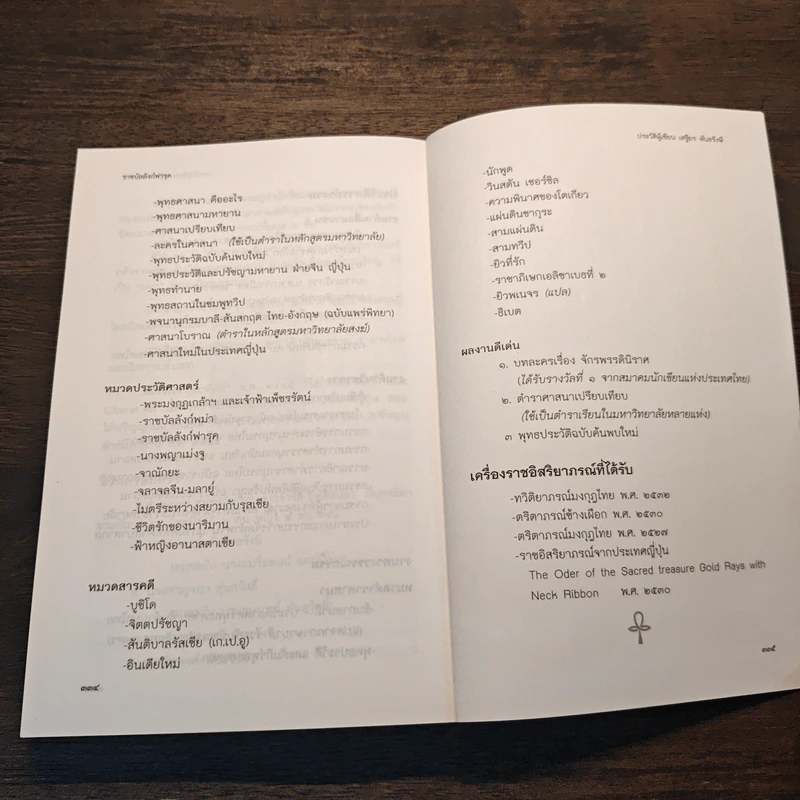 ราชบัลลังก์ฟารุค
-พุทธศาสนา คืออะไร
-พุทธศาสนามหายาน
-ศาสนาเปรียบเทียบ
-ละครในศาสนา (ใช้เป็นตำราในหลักสูตรมหาวิทยาลัย)
-พุทธประวัติฉบับค้นพบใหม่
-พุทธประวัติและปรัชญามหายาน ฝ่ายจีน ญี่ปุ่น
-พุทธทำนาย
-พุทธสถานในชมพูทวีป
-พจนานุกรมบาลี-สันสกฤต ไทย-อังกฤษ (ฉบับแพร่พิทยา)
-ศาสนาโบราณ (ตำราในหลักสูตรมหาวิทยาลัยสงฆ์)
-ศาสนาใหม่ในประเทศญี่ปุ่น
หมวดประวัติศาสตร์
-พระมงกุฎเกล้าฯ และเจ้าฟ้าเพ็ชรรัตน์
-ราชบัลลังก์พม่า
-ราชบัลลังก์ฟารุค
-นางพญาเม่งจู
-จาณักยะ
-จลาจลจีน-มลายู
-ไมตรีระหว่างสยามกับรุสเซีย
-ชีวิตรักของนาริมาน
-ฟ้าหญิงอานาสตาเซีย
หมวดสารคดี
-บูชิโด
-จิตตปรัชญา
-สันติบาลรัสเซีย (เก.เป.อู)
-อินเดียใหม่
๓๓๔
ประวัติผู้เขียน เสฐียร พันธรังษี
-นักพูด
-วินสตัน เชอร์ชิล
-ความพินาศของโตเกียว
-แผ่นดินซากุระ
-สามแผ่นดิน
-สามทวีป
-ยิวที่รัก
-ราชาภิเษกเอลิซาเบธที่ ๒
-ยิวพเนจร (แปล)
-ธิเบต
ผลงานดีเด่น
๑. บทละครเรื่อง จักรพรรดินิราศ
(ได้รับรางวัลที่ ๑ จากสมาคมนักเขียนแห่งประเทศไทย)
๒. ตำราศาสนาเปรียบเทียบ
(ใช้เป็นตำราเรียนในมหาวิทยาลัยหลายแห่ง)
๓ พุทธประวัติฉบับค้นพบใหม่
เครื่องราชอิสริยาภรณ์ที่ได้รับ
-ทวิติยาภรณ์มงกุฎไทย พ.ศ. ๒๕๓๒
-ตริตาภรณ์ช้างเผือก พ.ศ. ๒๕๓๐
-ตริตาภรณ์มงกุฎไทย พ.ศ. ๒๕๒๗
-ราชอิสริยาภรณ์จากประเทศญี่ปุ่น
The Oder of the Sacred treasure Gold Rays with
Neck Ribbon พ.ศ. ๒๕๓๐
๓๓๕